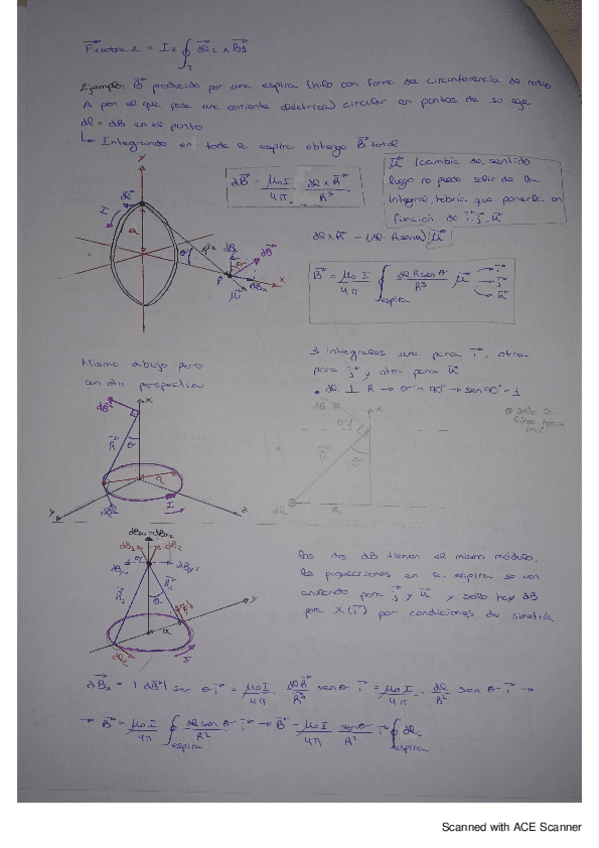 F⃗1 sobre 2 = I₂ ∮₂ dl⃗₂ × B⃗₁
Ejemplo: B⃗ producido por una espira (hilo con forma de circunferencia de radio
A por el que pasa una corriente eléctrica) circular en puntos de su eje
dl = dB en el punto
↳ Integrando en toda la espira obtengo B⃗ total
dB⃗ = μ₀I/4π · dl × R⃗/R³
μ⃗ (cambia de sentido
luego no puede salir de la
integral, habría que ponerla en
función de i⃗, j⃗, k⃗
dl × R⃗ = (dl · R senα) μ⃗
B⃗ = μ₀I/4π ∮espira dl R sen θ/R³ μ⃗
Mismo dibujo pero
con otra perspectiva
3 integrales una para i⃗, otra
para j⃗ y otra para k⃗
• dl ⊥ R → θ = 90° → sen 90° = 1
Los dos dB tienen el mismo módulo,
las proyecciones en la espira se van
anulando para j⃗ y k⃗ y solo hay dB
para X (i⃗) por condiciones de simetría
dB⃗x = |dB⃗| sen θ i⃗ = μ₀I/4π · dl R⃗/R³ sen θ i⃗ = μ₀I/4π · dl/R² sen θ i⃗ →
→ B⃗ = μ₀I/4π ∮espira dl sen θ/R² i⃗ → B⃗ = μ₀I/4π sen θ/R² i⃗ ∮espira dl
Scanned with ACE Scanner